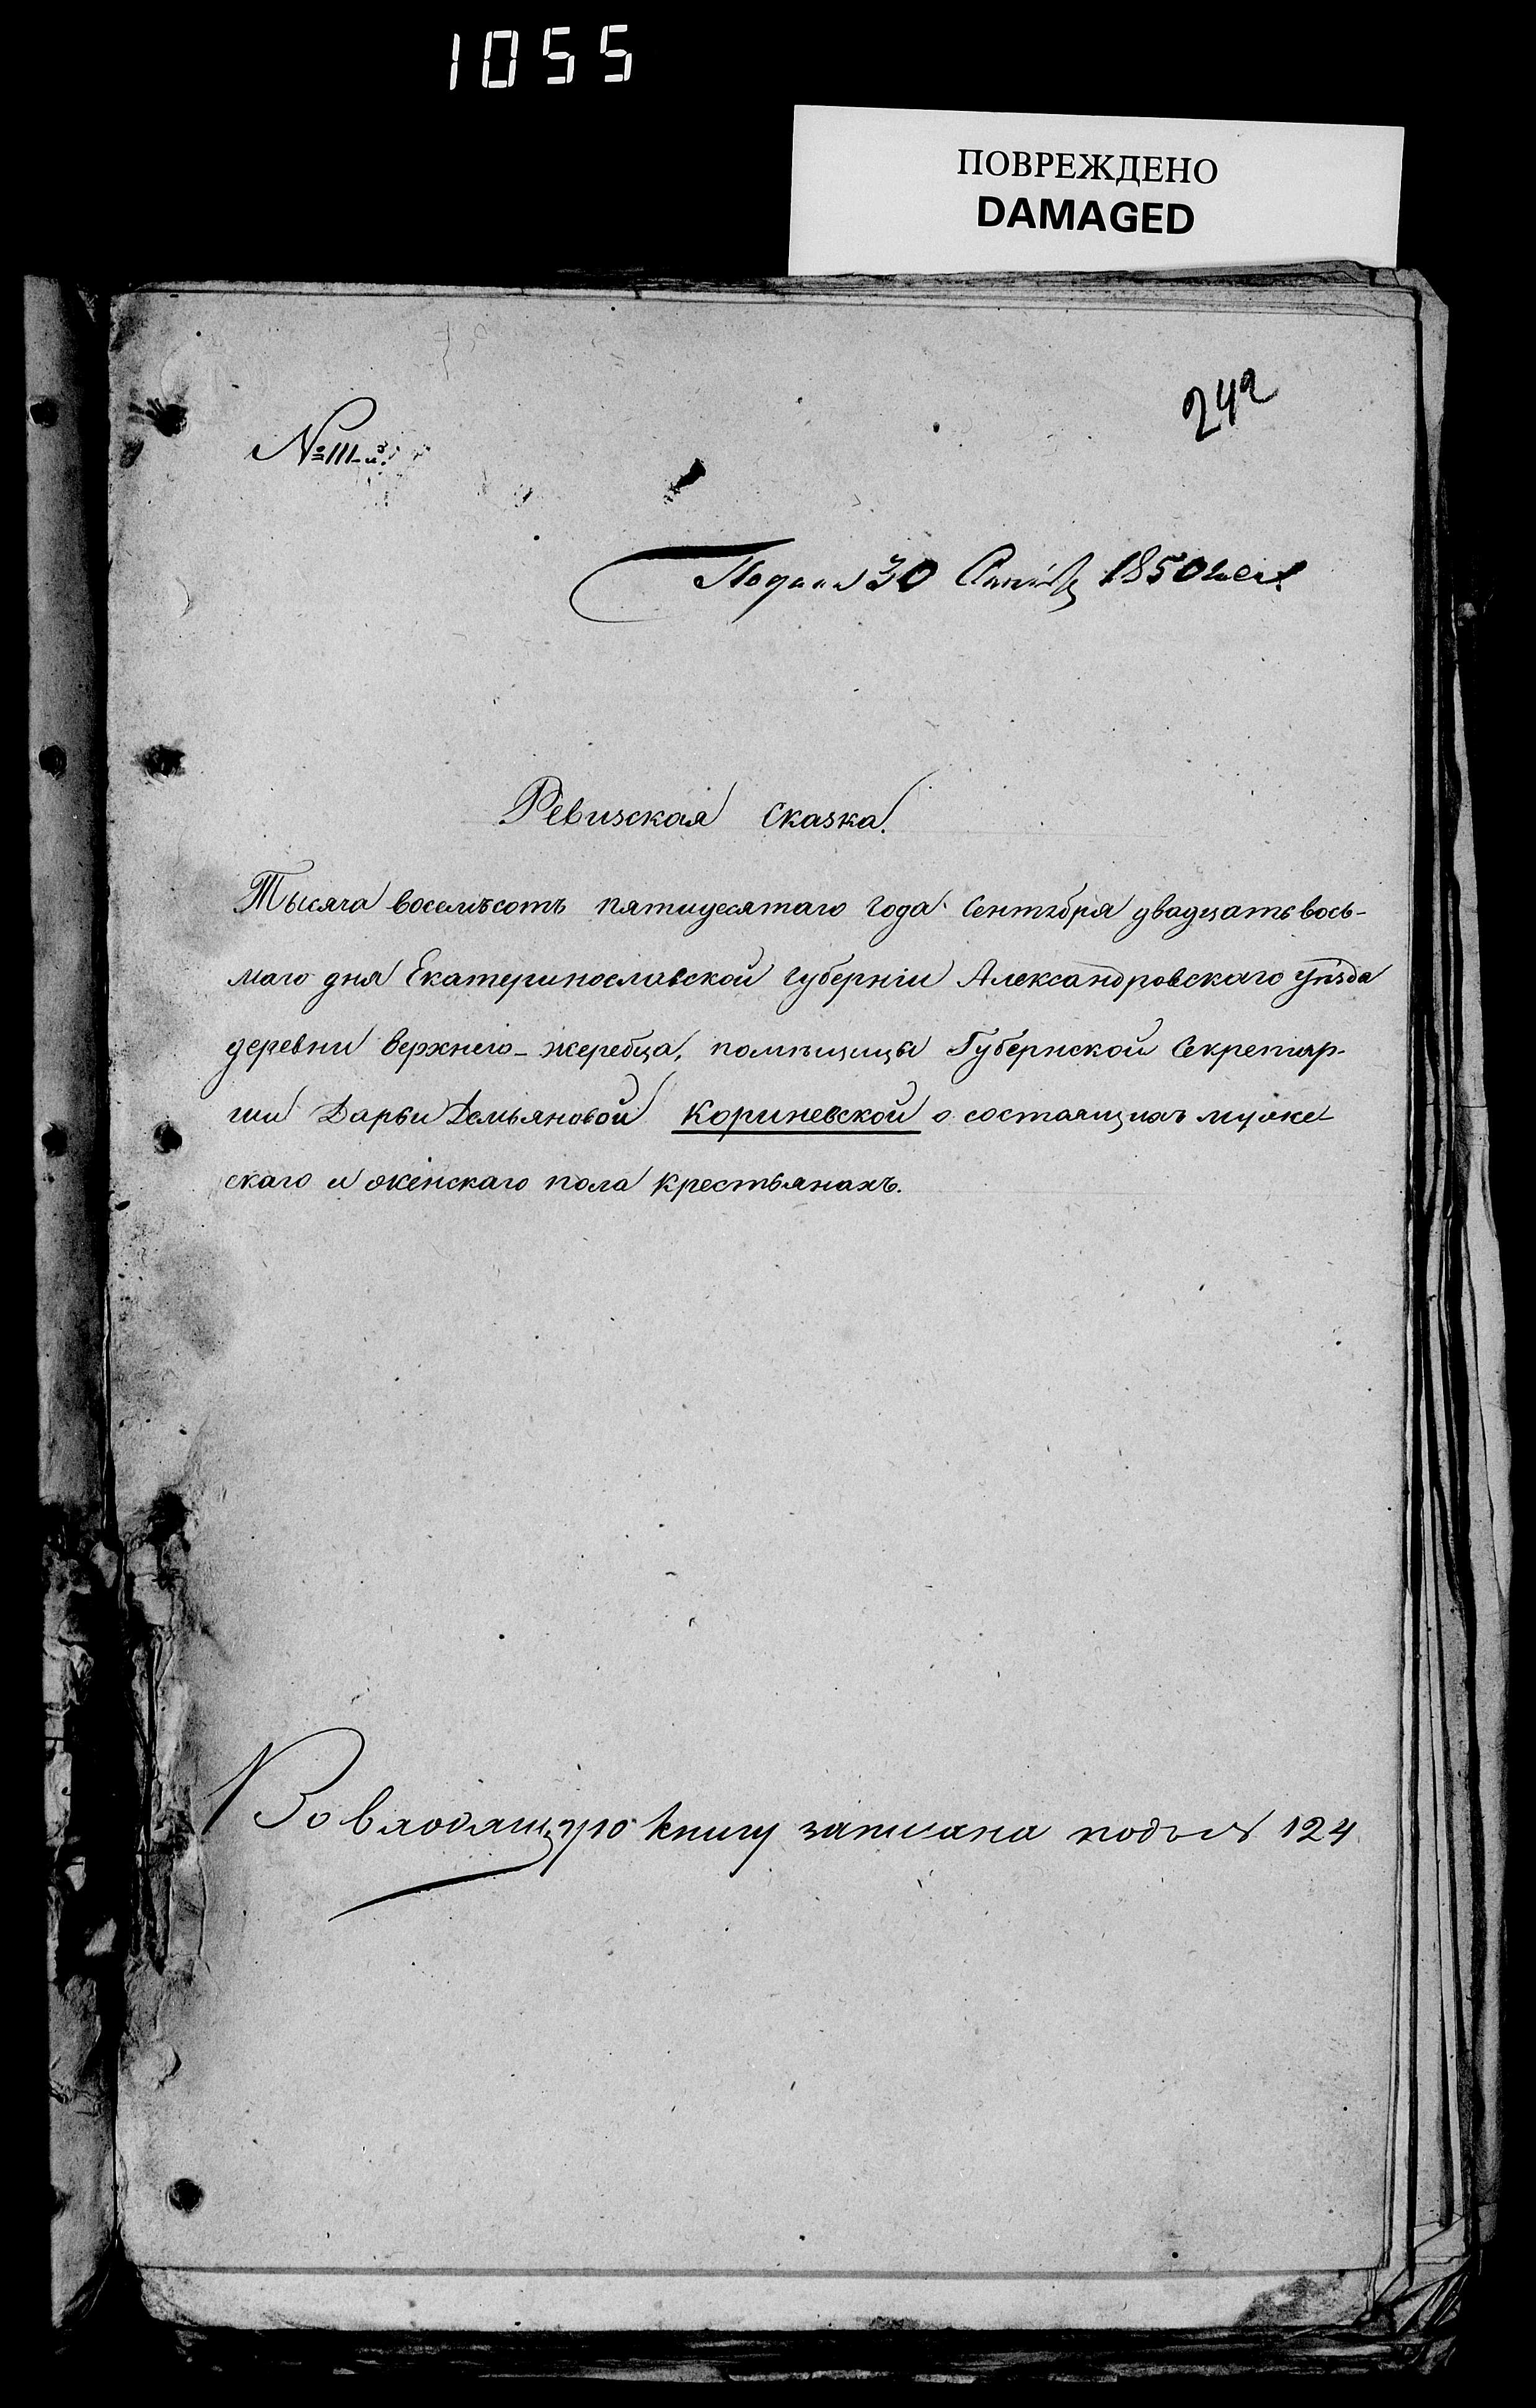 1055
ПОВРЕЖДЕНО
DAMAGED
242
№ 111-й.
Подана 30 Сентяб 1850 года
Ревизская Сказка.
Тысяча восемьсотъ пятидесятаго года Сентября двадцать вось-
маго дня Екатеринославской Губерніи Александровскаго уѣзда
деревни Верхнего-жеребца, помѣщицы Губернской Секретар-
ши Дарьи Демьяновой Кориневской о состоящихъ муже-
скаго и женскаго пола крестьянахъ.
Во входящую книгу записана подъ № 124